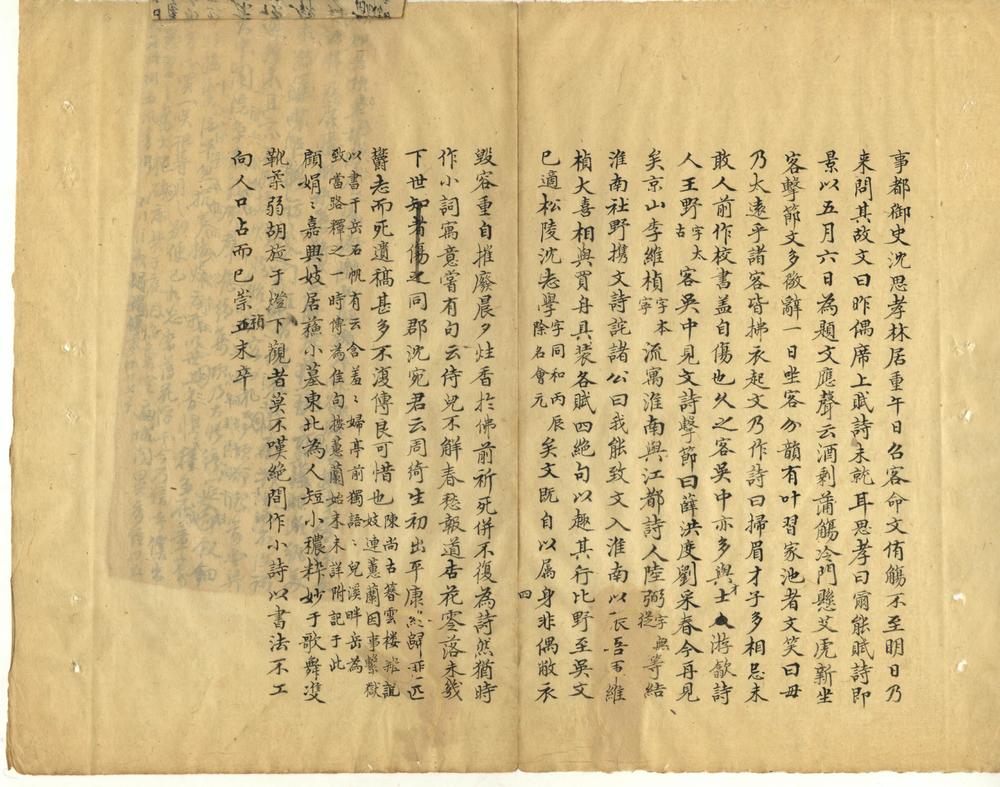 事都御史沈思孝林居重午日召客命文侑觴不至明日乃
来問其故文曰昨偶席上賦詩未就耳思孝曰爾能賦詩即
景以五月六日為題文應聲云酒剩蒲觴冷門懸艾虎新坐
客擊節文多微辭一日坐客分韻有叶習家池者文笑曰毋
乃太遠乎諸客皆拂衣起文乃作詩曰掃眉才子多相忌未
敢人前作校書蓋自傷也久之客吳中亦多與士人游歙詩
人王野字太古客吳中見文詩擊節曰薛洪度劉采春今再見
矣京山李維楨字本寧流寓淮南與江都詩人陸弼字無從等結
淮南社野携文詩詫諸公曰我能致文入淮南以一長吾軍維
楨大喜相與買舟具装各賦四絕句以趣其行比野至吳文
已適松陵沈志學字同和丙辰除名會元矣文既自以属身非偶敝衣
四
毀容重自摧廢晨夕炷香於佛前祈死併不復為詩然猶時
作小詞寓意嘗有句云侍兒不解春愁報道杏花零落未幾
下世知者傷之同郡沈宛君云周綺生初出平康終歸匪匹
鬱志而死遺稿甚多不復傳良可惜也陳尚古簪雲樓雜說妓連蕙蘭因事繫獄
以書干岳石帆有云含羞羞婦亭前獨語語兒溪畔岳為
致當路釋之一時傳為佳句按蕙蘭始末未詳附記于此
顧娟〻嘉興妓居蘓小墓東北為人短小穠粹妙于歌舞雙
靴柔弱胡旋于燈下觀者莫不嘆絕間作小詩以書法不工
向人口占而已崇禎末卒